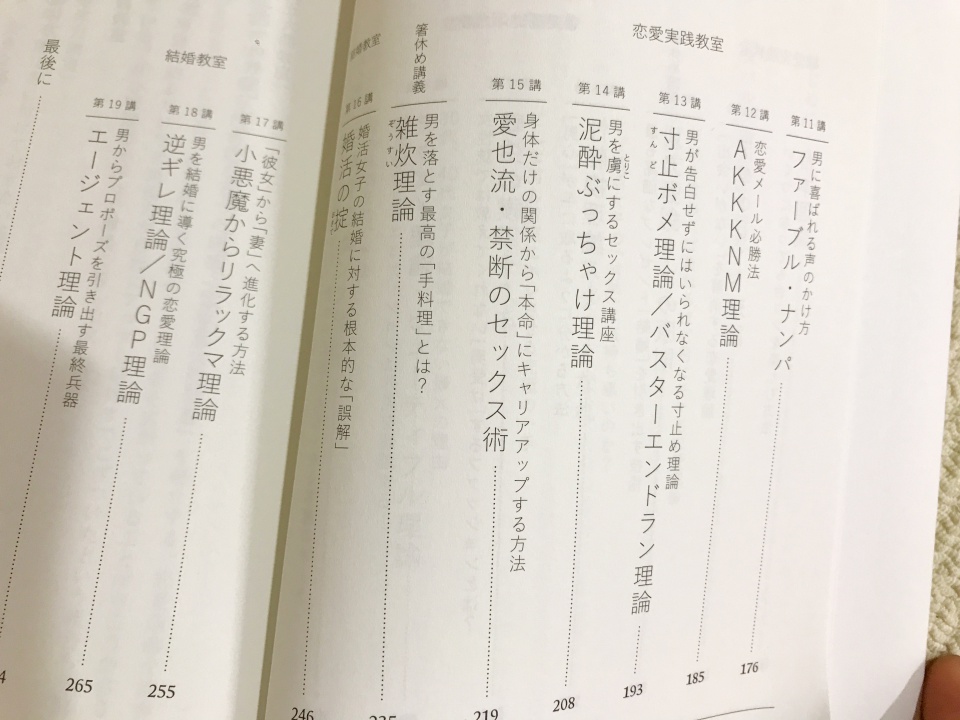 恋愛実践教室
第11講
男に喜ばれる声のかけ方
ファーブル・ナンパ
176
第12講
恋愛メール必勝法
AKKKNM理論
185
第13講
男が告白せずにはいられなくなる寸止め理論
寸止ボメ理論／バスターエンドラン理論
すんど
193
第14講
男を虜にするセックス講座
とりこ
泥酔ぶっちゃけ理論
208
第15講
身体だけの関係から「本命」にキャリアアップする方法
愛也流・禁断のセックス術
219
箸休め講義
男を落とす最高の「手料理」とは？
雑炊理論
ぞうすい
結婚教室
第16講
婚活女子の結婚に対する根本的な「誤解」
婚活の掟
246
結婚教室
第17講
「彼女」から「妻」へ進化する方法
小悪魔からリラックマ理論
第18講
男を結婚に導く究極の恋愛理論
逆ギレ理論／NGP理論
255
第19講
男からプロポーズを引き出す最終兵器
エージェント理論
265
最後に